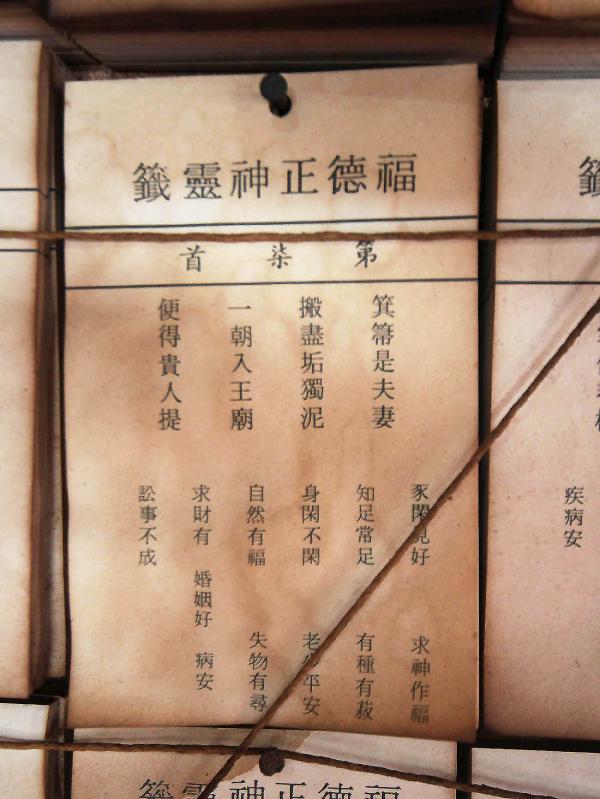 福德正神靈籤
第柒首
箕箒是夫妻
搬盡垢獨泥
一朝入王廟
便得貴人提
豕閑見好 求神作福
知足常足 有種有
身閑不閑 老少平安
自然有福 失物有尋
求財有 婚姻好 病安
訟事不成
疾病安
福德正神靈籤